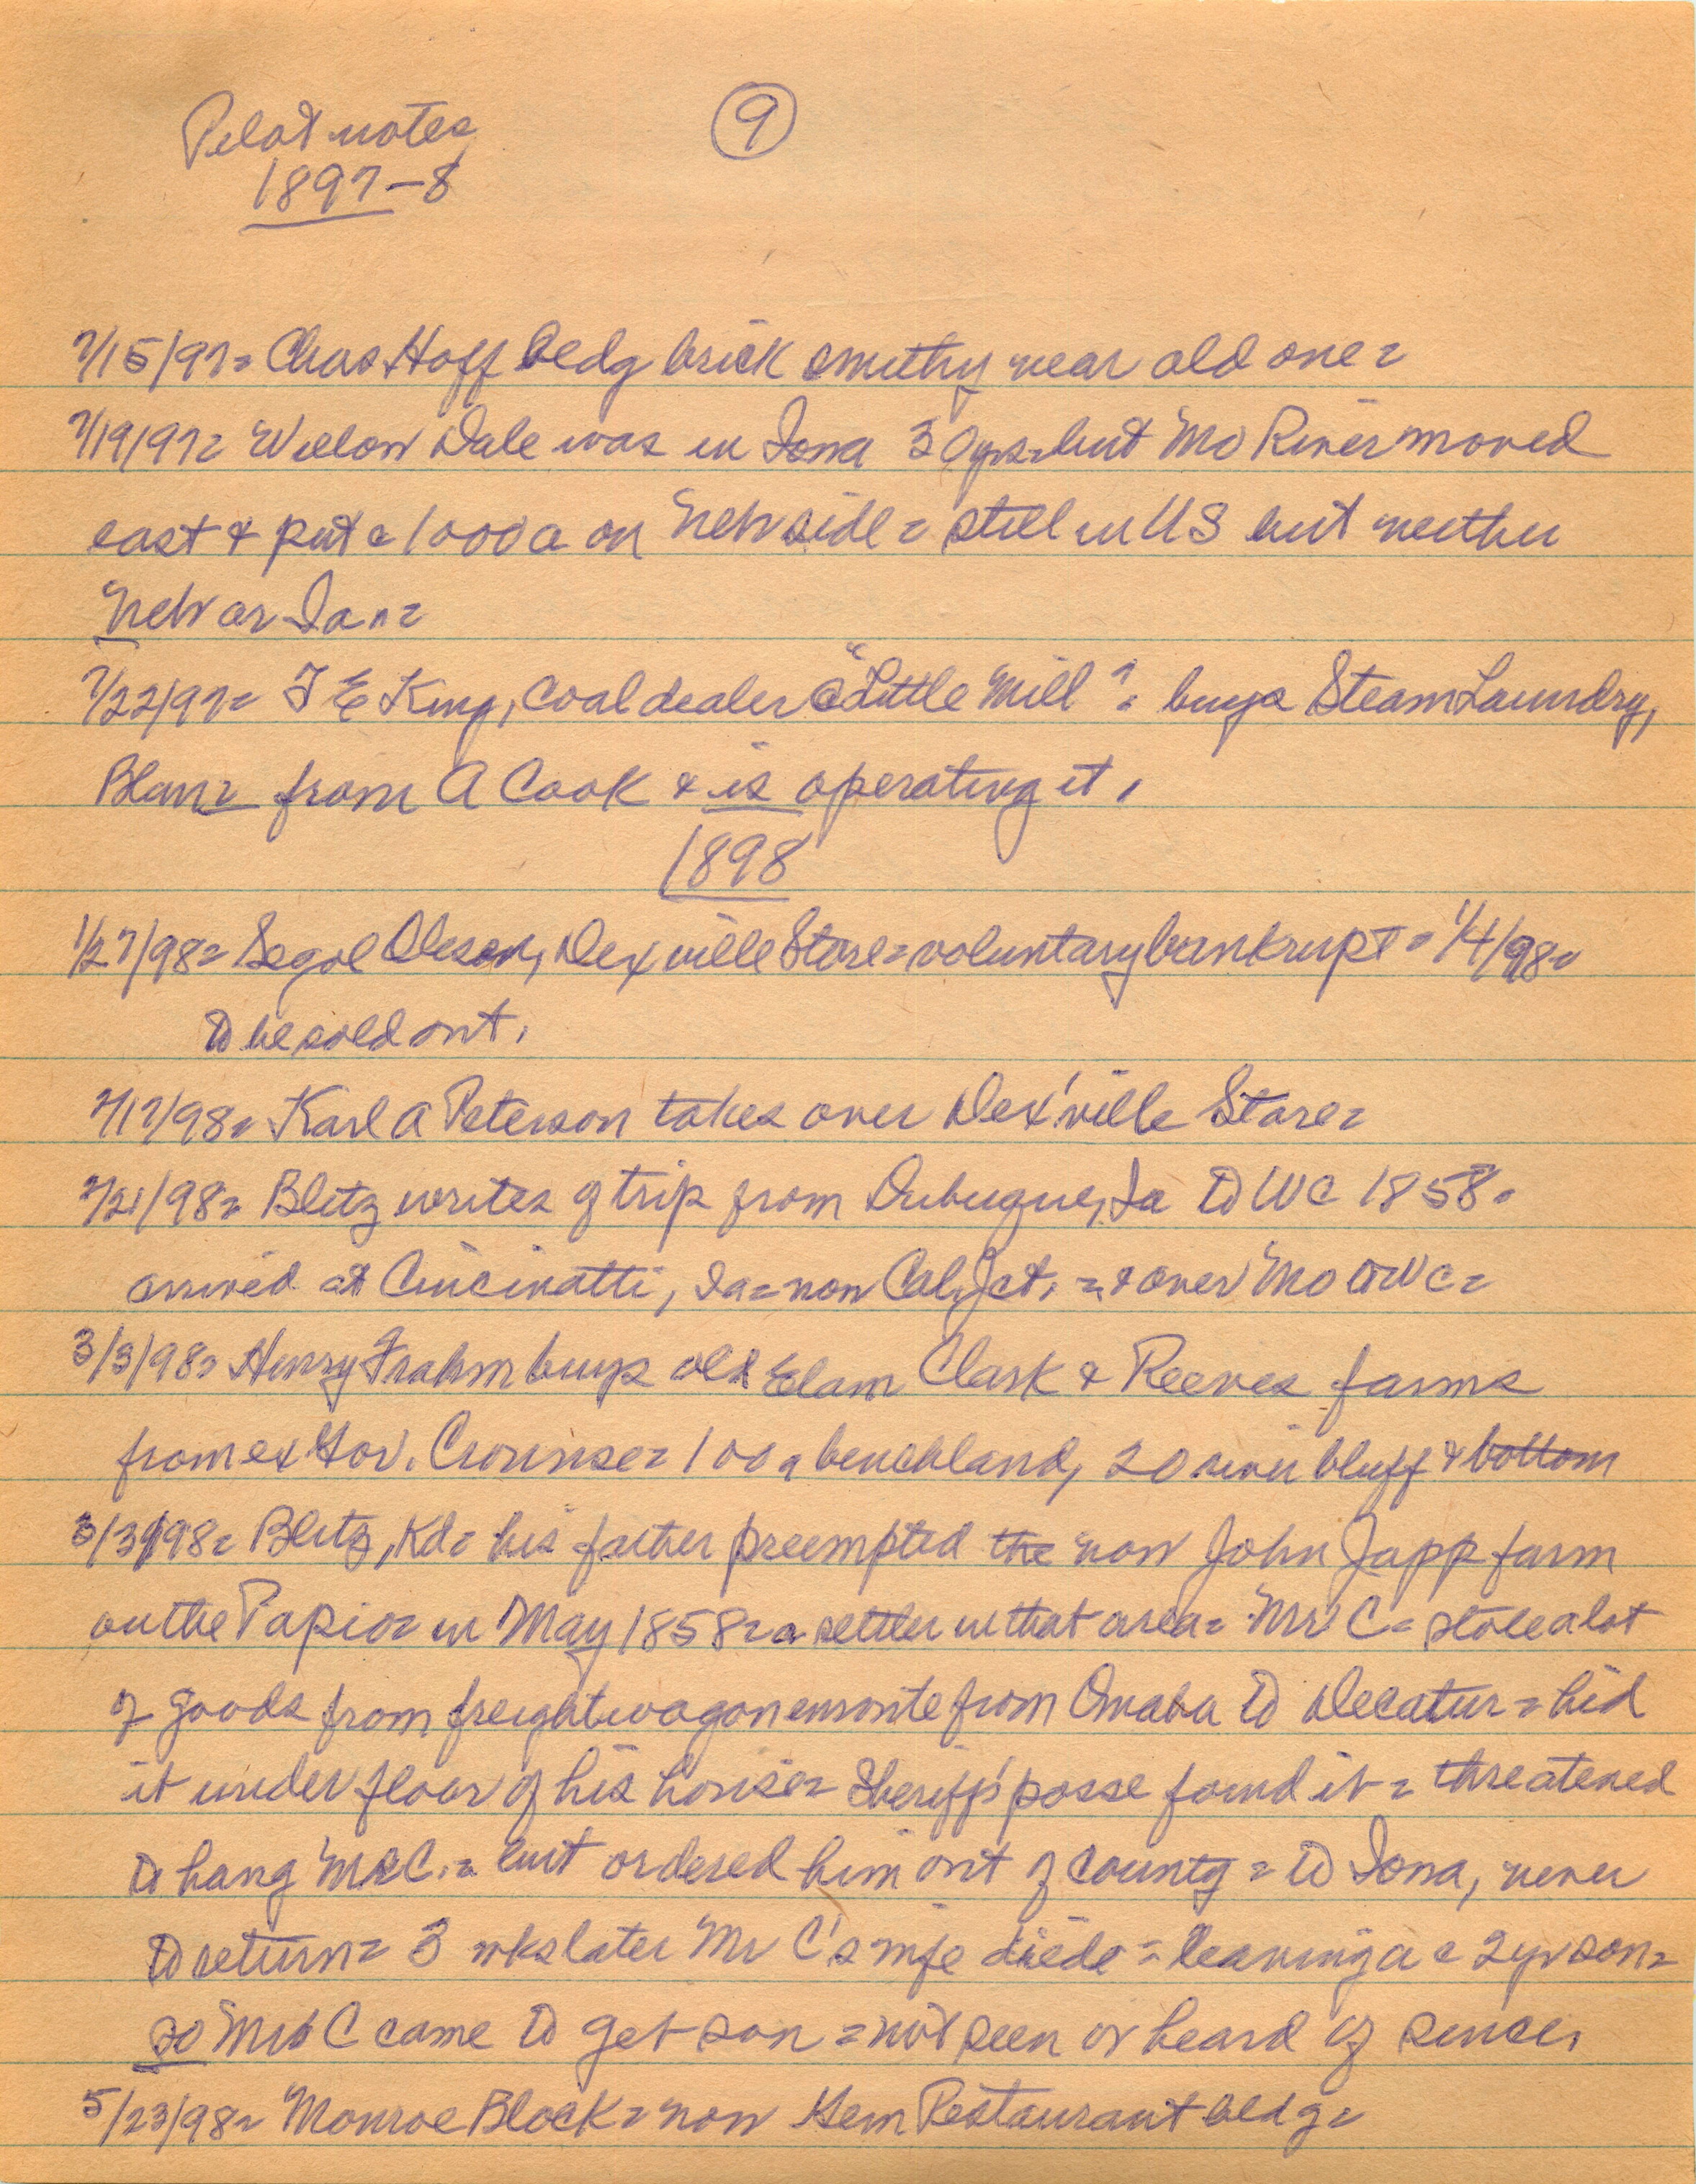 Pilot notes
9
1897-8
7/15/97= Chas Hoff bldg brick smithy near old one=
7/19/97= Willow Dale was in Iowa 30 yrs= but Mo River moved
east & put c 1000a on Neb side = still in US but neither
Neb or Ia n=
7/22/97= F E King, coal dealer @ "Little Mill" = buys Steam Laundry,
Blair= from A Cook & is operating it.
1898
1/27/98= Olesen, Dexville Store= voluntary bankrupt = 1/4/98=
to be sold out.
2/17/98= Karl A Peterson takes over Dex'ville Store=
2/21/98= Blitz writes of trip from Dubuque, Ia to WC 1858=
arrived at Cincinatti, Ia= now Cal. Jct. = & over Mo at WC=
3/3/98= Henry Frahm buys old Elam Clark & Reeves farms
from ex Gov. Crounse= 100a benchland, 20 river bluff & bottom
3/31/98= Blitz, Kd= his father preempted the now John Japp farm
on the Papio= in May 1858= a settler in that area= Mr C= stole a lot
of goods from freight wagon enroute from Omaha to Decatur = hid
it under floor of his house= Sheriff's posse found it = threatened
to hang Mr C. = but ordered him out of county = to Iowa, never
to return= 3 wks later Mr C's wife died = leaving a c 2 yr son=
so Mr C came to get son = not seen or heard of since.
5/23/98= Monroe Block= now Gem Restaurant bldg=